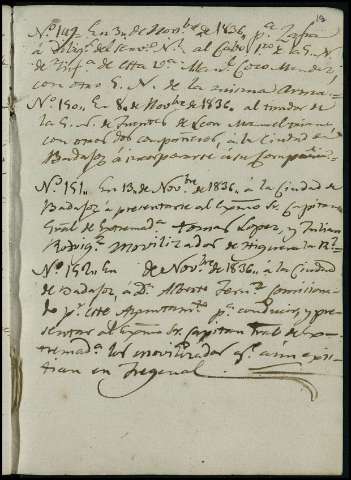 Nº 149, En 3,, de Novbre de 1836,, pª Zafra
al Cabo 1ro
de esta Vª Manl Coco Mendez
con otro G. N. de la misma Arma
Nº 150,, En 8,, de Novbre de 1836,, al
la G. N. de Fuentes de Leon Manuel
con otros dos compañeros, a la Ciudad de
Badajoz á incorporarse a su Compañia
Nº 151,, En 13,, de Novre de 1836,, á la Ciudad de
Badajoz á presentarse al Exmo Sr. Capitan
Gral de Extremadª Tomas Lopez, y Julian
Rodrigz Movilizados de Higuera la Rl
Nº 152,, En de Novbre de 1836,, á la Ciudad
de Badajoz, á Dn Alberto comisiona
do pr este Ayuntamto pª conducir, y pre
sentar al Exmo Sr. Capitan Gral de Ex
tremadª los movilizados qe aun exis
tian en Fregenal